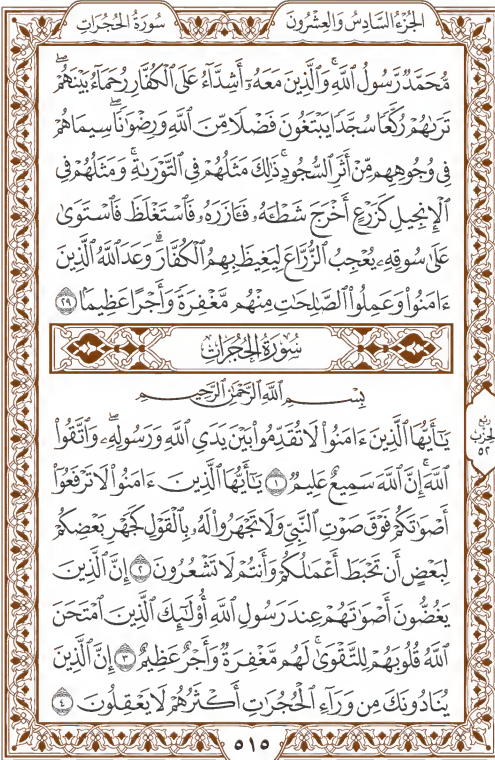 الجُزْءُ السَّادِسُ وَالعِشْرُونَ
سُورَةُ الحُجُرَاتِ
مُّحَمَّدٌ رَّسُولُ ٱللَّهِۚ وَٱلَّذِينَ مَعَهُۥٓ أَشِدَّآءُ عَلَى ٱلْكُفَّارِ رُحَمَآءُ بَيْنَهُمْۖ
تَرَىٰهُمْ رُكَّعًا سُجَّدًا يَبْتَغُونَ فَضْلًا مِّنَ ٱللَّهِ وَرِضْوَٰنًاۖ سِيمَاهُمْ
فِى وُجُوهِهِم مِّنْ أَثَرِ ٱلسُّجُودِۚ ذَٰلِكَ مَثَلُهُمْ فِى ٱلتَّوْرَىٰةِۚ وَمَثَلُهُمْ فِى
ٱلْإِنجِيلِ كَزَرْعٍ أَخْرَجَ شَطْـَٔهُۥ فَـَٔازَرَهُۥ فَٱسْتَغْلَظَ فَٱسْتَوَىٰ
عَلَىٰ سُوقِهِۦ يُعْجِبُ ٱلزُّرَّاعَ لِيَغِيظَ بِهِمُ ٱلْكُفَّارَۗ وَعَدَ ٱللَّهُ ٱلَّذِينَ
ءَامَنُوا۟ وَعَمِلُوا۟ ٱلصَّٰلِحَٰتِ مِنْهُم مَّغْفِرَةً وَأَجْرًا عَظِيمًۢا ٢٩
سُورَةُ الحُجُرَاتِ
بِسْمِ ٱللَّهِ ٱلرَّحْمَٰنِ ٱلرَّحِيمِ
يَٰٓأَيُّهَا ٱلَّذِينَ ءَامَنُوا۟ لَا تُقَدِّمُوا۟ بَيْنَ يَدَىِ ٱللَّهِ وَرَسُولِهِۦۖ وَٱتَّقُوا۟
ٱللَّهَۚ إِنَّ ٱللَّهَ سَمِيعٌ عَلِيمٌ ١ يَٰٓأَيُّهَا ٱلَّذِينَ ءَامَنُوا۟ لَا تَرْفَعُوٓا۟
أَصْوَٰتَكُمْ فَوْقَ صَوْتِ ٱلنَّبِىِّ وَلَا تَجْهَرُوا۟ لَهُۥ بِٱلْقَوْلِ كَجَهْرِ بَعْضِكُمْ
لِبَعْضٍ أَن تَحْبَطَ أَعْمَٰلُكُمْ وَأَنتُمْ لَا تَشْعُرُونَ ٢ إِنَّ ٱلَّذِينَ
يَغُضُّونَ أَصْوَٰتَهُمْ عِندَ رَسُولِ ٱللَّهِ أُو۟لَٰٓئِكَ ٱلَّذِينَ ٱمْتَحَنَ
ٱللَّهُ قُلُوبَهُمْ لِلتَّقْوَىٰۚ لَهُم مَّغْفِرَةٌ وَأَجْرٌ عَظِيمٌ ٣ إِنَّ ٱلَّذِينَ
يُنَادُونَكَ مِن وَرَآءِ ٱلْحُجُرَٰتِ أَكْثَرُهُمْ لَا يَعْقِلُونَ ٤
ربع
الحزب
٥٢
٥١٥